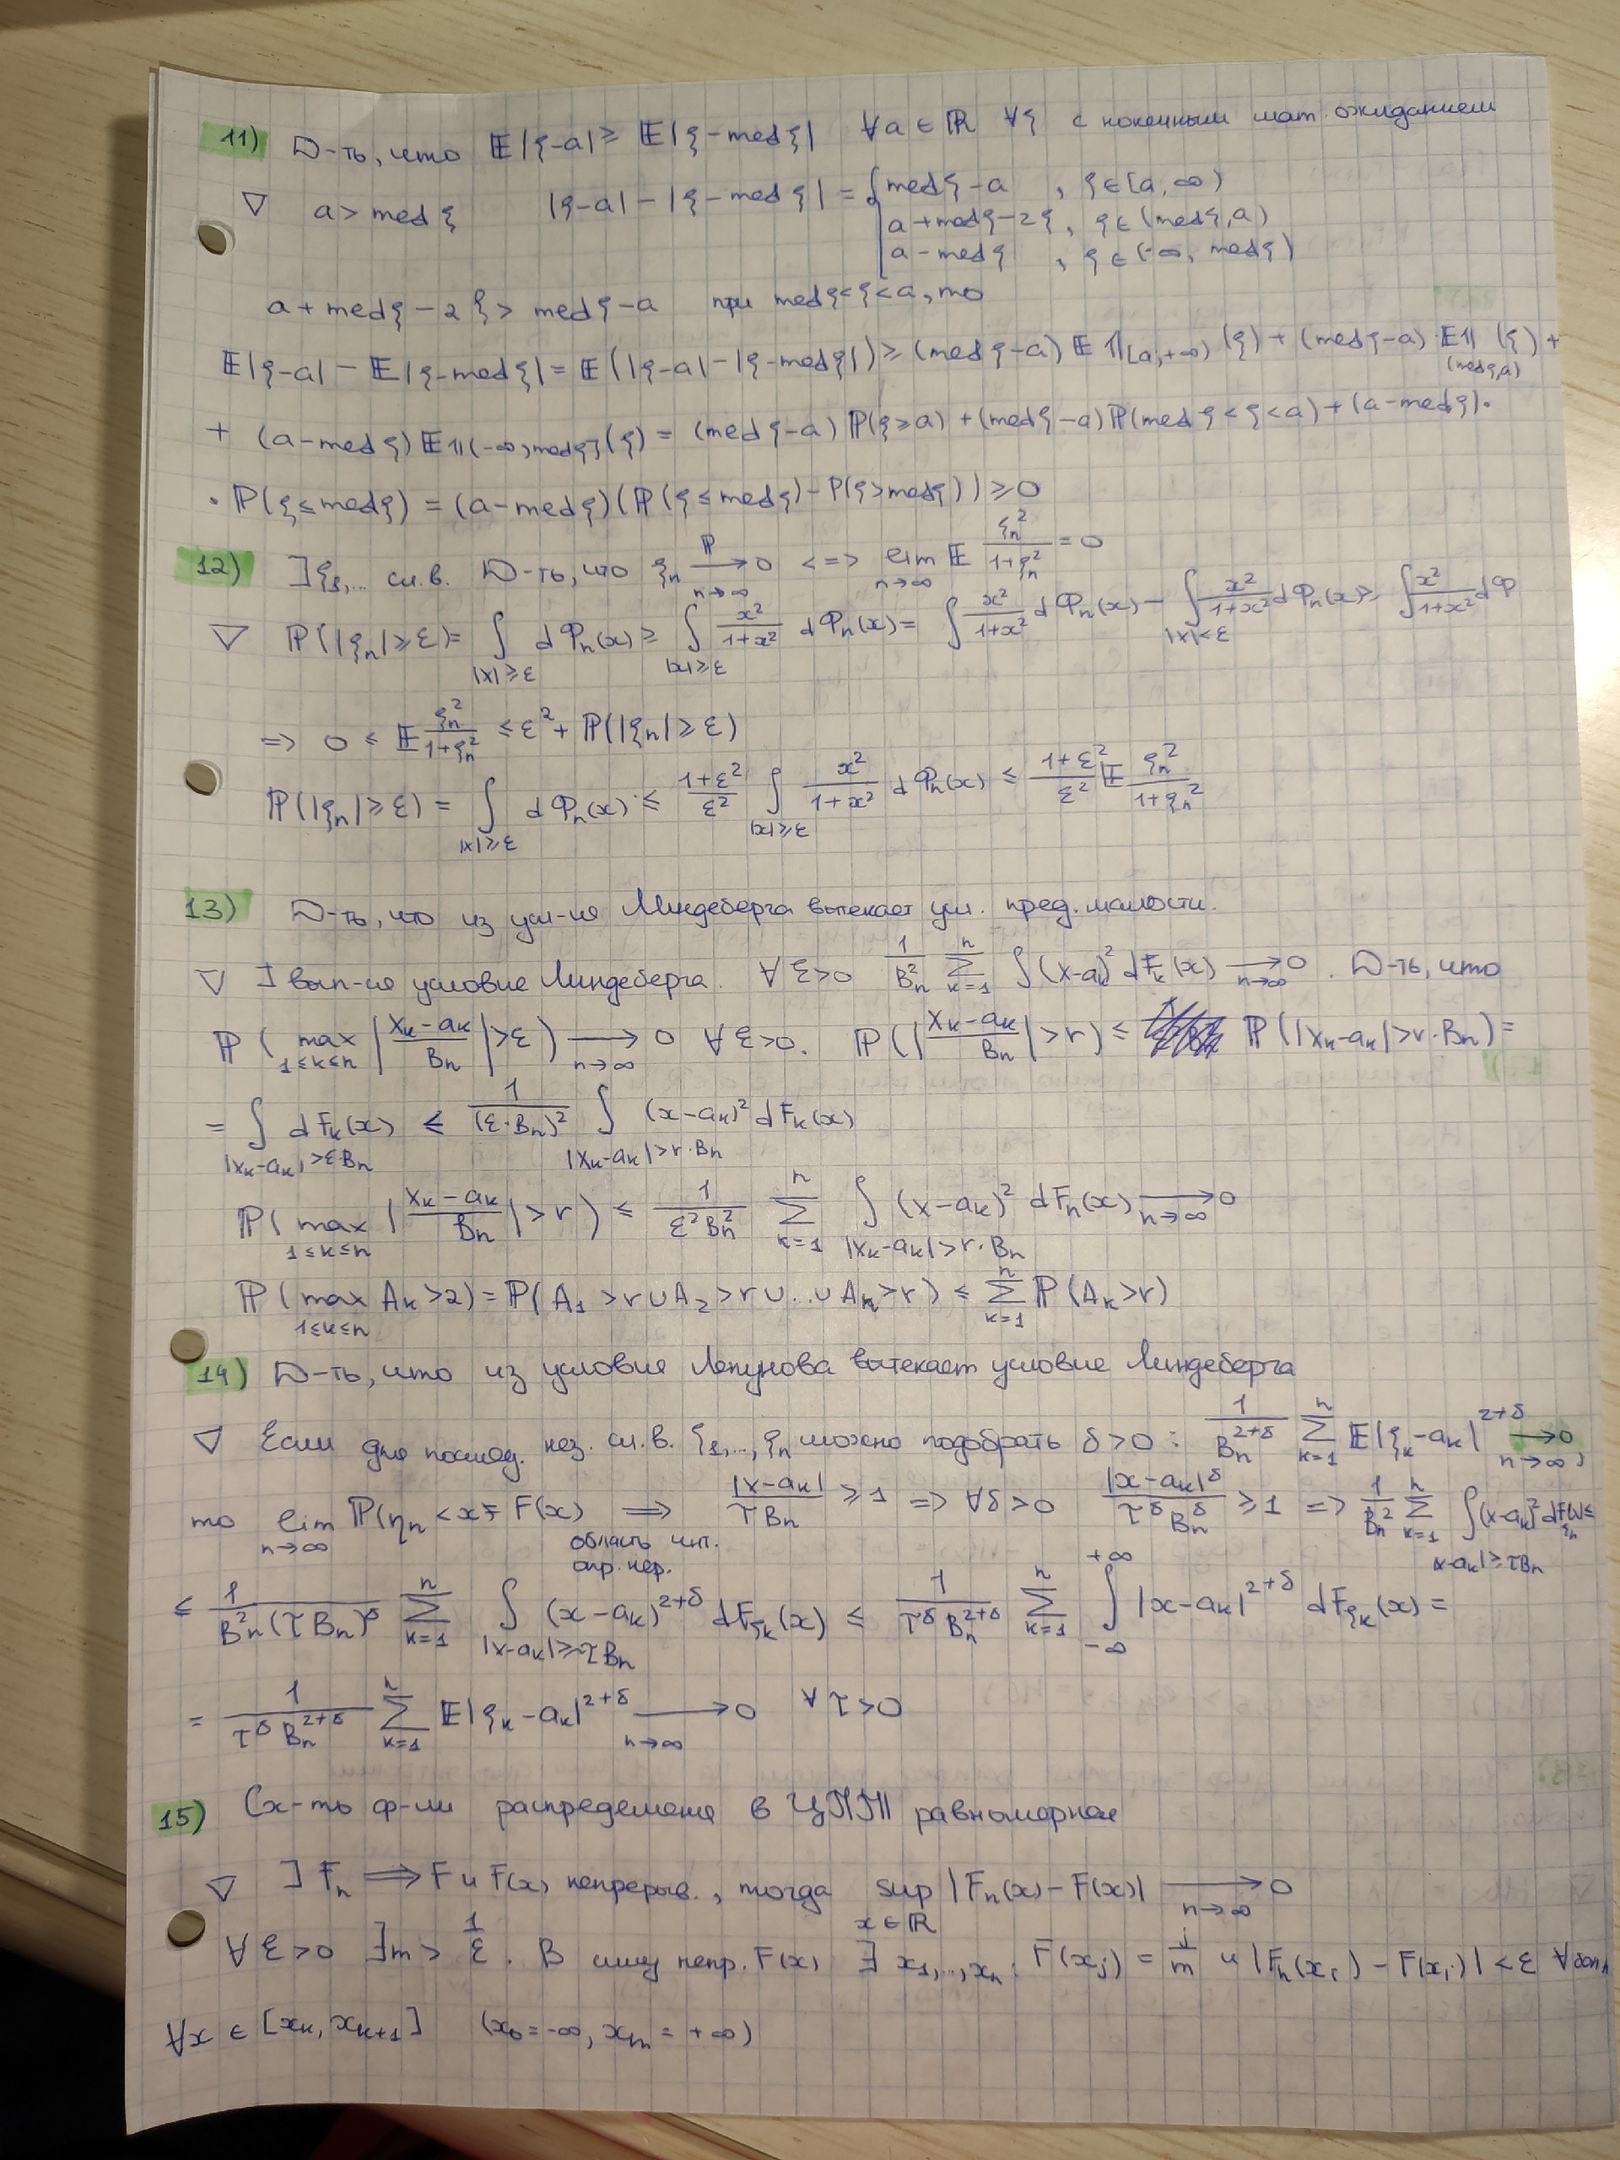 11) D-ть, что 𝔼|ξ-a| ≥ 𝔼|ξ-med ξ| ∀a ∈ ℝ ∀ξ с конечным мат. ожиданием
▽ a > med ξ |ξ-a| - |ξ-med ξ| = { med ξ - a , ξ∈[a, ∞)
a + med ξ - 2ξ, ξ ∈ (med ξ, a)
a - med ξ , ξ ∈ (-∞, med ξ)
a + med ξ - 2ξ > med ξ - a при med ξ < ξ < a, то
𝔼|ξ-a| - 𝔼|ξ-med ξ| = 𝔼(|ξ-a| - |ξ-med ξ|) ≥ (med ξ-a) 𝔼 𝟙_[a,+∞) (ξ) + (med ξ-a) · 𝔼𝟙_(med ξ,a) (ξ) +
+ (a-med ξ) 𝔼𝟙_(-∞,med ξ] (ξ) = (med ξ-a) ℙ(ξ≥a) + (med ξ-a) ℙ(med ξ < ξ < a) + (a-med ξ) ·
· ℙ(ξ ≤ med ξ) = (a-med ξ)(ℙ(ξ ≤ med ξ) - P(ξ > med ξ)) ≥ 0
12) ∃ξ₁,... сл.в. D-ть, что ξₙ →^ℙ_{n→∞} 0 <=> lim_{n→∞} 𝔼 ξₙ²/(1+ξₙ²) = 0
▽ ℙ(|ξₙ| ≥ ε) = ∫_{|x|≥ε} dΦₙ(x) ≥ ∫_{|x|≥ε} x²/(1+x²) dΦₙ(x) = ∫ x²/(1+x²) dΦₙ(x) - ∫_{|x|<ε} x²/(1+x²) dΦₙ(x) ≥ ∫ x²/(1+x²) dΦ
=> 0 ≤ 𝔼 ξₙ²/(1+ξₙ²) ≤ ε² + ℙ(|ξₙ| ≥ ε)
ℙ(|ξₙ| ≥ ε) = ∫_{|x|≥ε} dΦₙ(x) ≤ (1+ε²)/ε² ∫_{|x|≥ε} x²/(1+x²) dΦₙ(x) ≤ (1+ε²)/ε² 𝔼 ξₙ²/(1+ξₙ²)
13) D-ть, что из усл-ия Линдеберга вытекает усл. пред. малости.
▽ ∃ вып-но условие Линдеберга. ∀ε>0 1/Bₙ² Σ_{k=1}^n ∫(x-aₖ)² dFₖ(x) →_{n→∞} 0. D-ть, что
ℙ( max_{1≤k≤n} |(xₖ-aₖ)/Bₙ| > ε ) →_{n→∞} 0 ∀ε>0. ℙ(|(xₖ-aₖ)/Bₙ| > r) ≤ ℙ(|xₖ-aₖ| > r·Bₙ) =
= ∫_{|xₖ-aₖ|>ε·Bₙ} dFₖ(x) ≤ 1/(ε·Bₙ)² ∫_{|xₖ-aₖ|>r·Bₙ} (x-aₖ)² dFₖ(x)
ℙ( max_{1≤k≤n} |(xₖ-aₖ)/Bₙ| > r ) ≤ 1/(ε²Bₙ²) Σ_{k=1}^n ∫_{|xₖ-aₖ|>r·Bₙ} (x-aₖ)² dFₙ(x) →_{n→∞} 0
ℙ( max_{1≤k≤n} Aₖ > 2) = ℙ(A₁ > r ∪ A₂ > r ∪ .. ∪ Aₙ > r) ≤ Σ_{k=1}^n ℙ(Aₖ > r)
14) D-ть, что из условия Ляпунова вытекает условие Линдеберга
▽ Если для послед. нез. сл.в. ξ₁,..,ξₙ можно подобрать δ>0 : 1/Bₙ^{2+δ} Σ_{k=1}^n 𝔼|ξₖ-aₖ|^{2+δ} →_{n→∞} 0,
то lim_{n→∞} ℙ(ηₙ < x) = F(x) ⟹ |x-aₖ|/(τBₙ) ≥ 1 => ∀δ>0 |x-aₖ|^δ/(τ^δ Bₙ^δ) ≥ 1 => 1/Bₙ² Σ_{k=1}^n ∫_{|x-aₖ|≥τBₙ} (x-aₖ)² dF_{ξₙ}(x) ≤
область инт.
опр. нер.
≤ 1/(Bₙ²(τBₙ)^δ) Σ_{k=1}^n ∫_{|x-aₖ|≥τBₙ} (x-aₖ)^{2+δ} dF_{ξₖ}(x) ≤ 1/(τ^δ Bₙ^{2+δ}) Σ_{k=1}^n ∫_{-∞}^{+∞} |x-aₖ|^{2+δ} dF_{ξₖ}(x) =
= 1/(τ^δ Bₙ^{2+δ}) Σ_{k=1}^n 𝔼|ξₖ-aₖ|^{2+δ} →_{n→∞} 0 ∀τ>0
15) Сх-ть ф-ии распределения в ЦПТ равномерная
▽ ∃ Fₙ ⟹ F и F(x) непрерыв., тогда sup_{x∈ℝ} |Fₙ(x) - F(x)| →_{n→∞} 0
∀ε>0 ∃m > 1/ε. В силу непр. F(x) ∃ x₁,..,xₙ: F(xⱼ) = j/m и |Fₙ(xᵢ) - F(xᵢ)| < ε
∀x ∈ [xₖ, xₖ₊₁] (x₀ = -∞, xₘ = +∞)